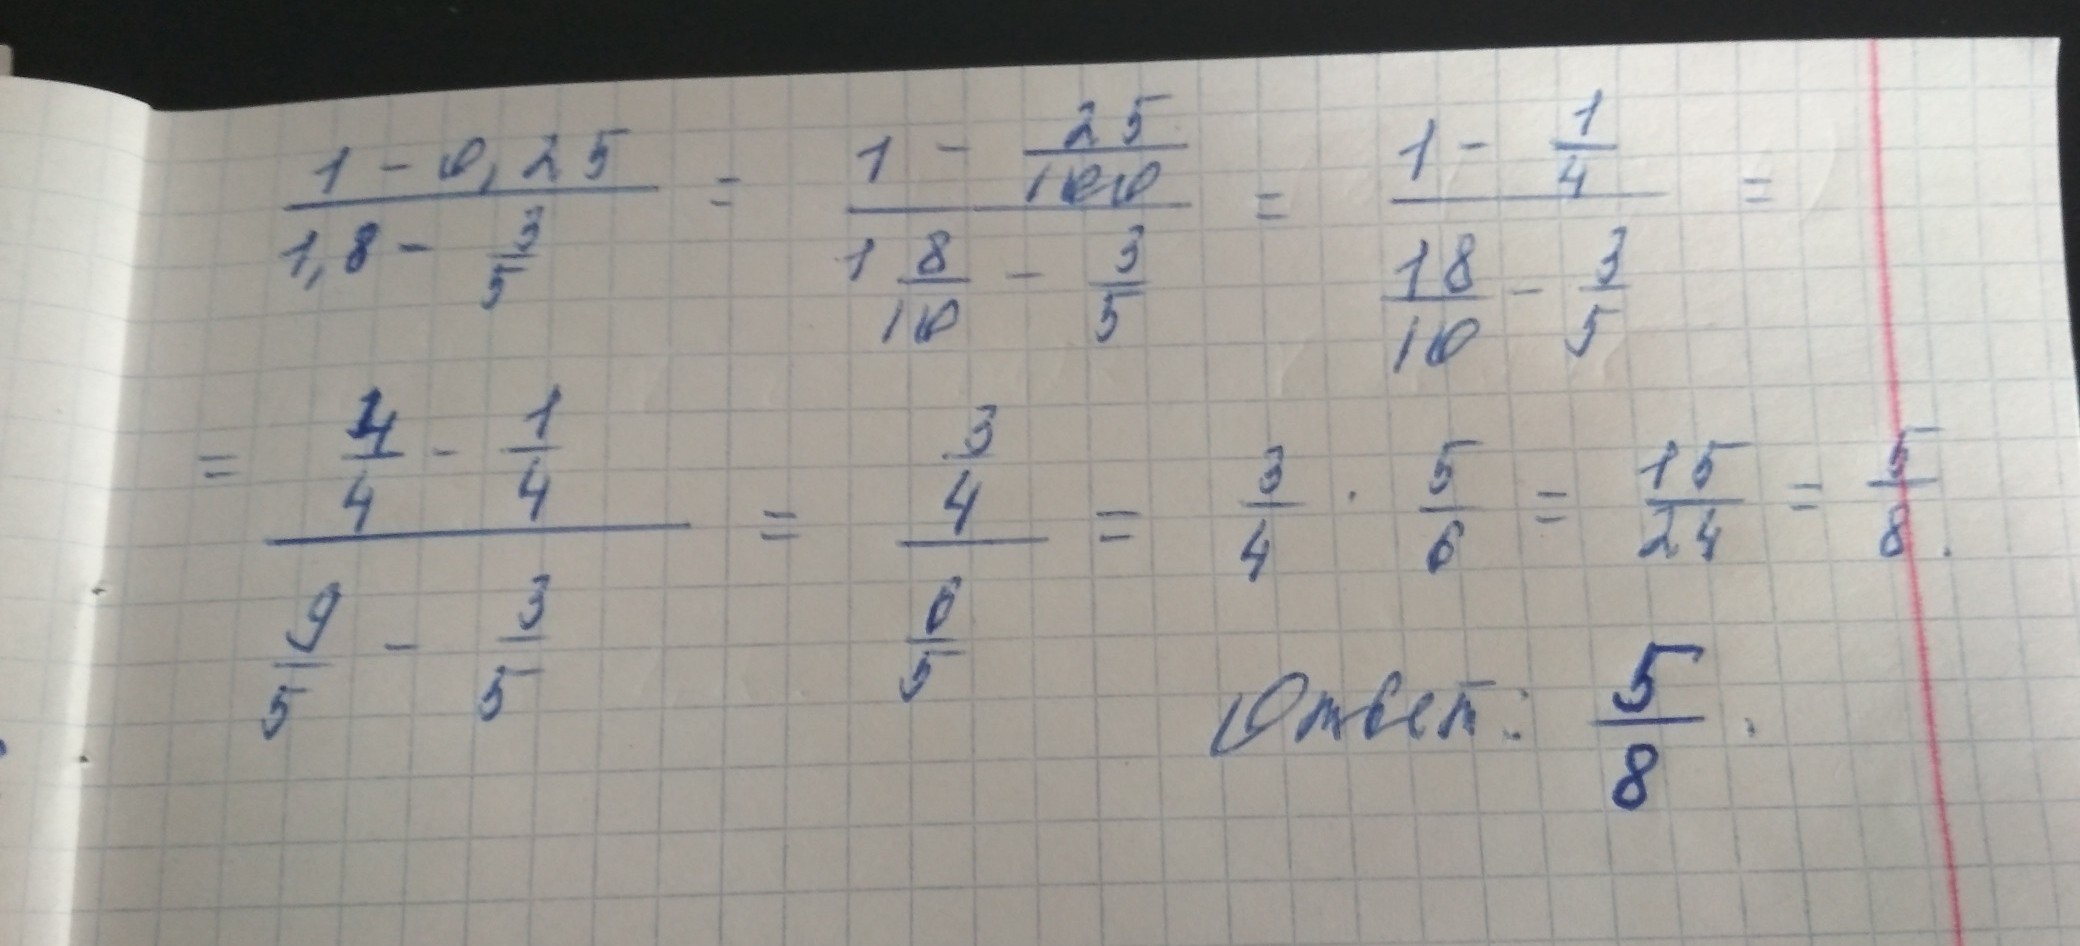 (1 - 0,25)/(1,8 - 3/5) = (1 - 25/100)/(1 8/10 - 3/5) = (1 - 1/4)/(18/10 - 3/5) =
= (4/4 - 1/4)/(9/5 - 3/5) = (3/4)/(6/5) = 3/4 · 5/6 = 15/24 = 5/8.
Ответ: 5/8.